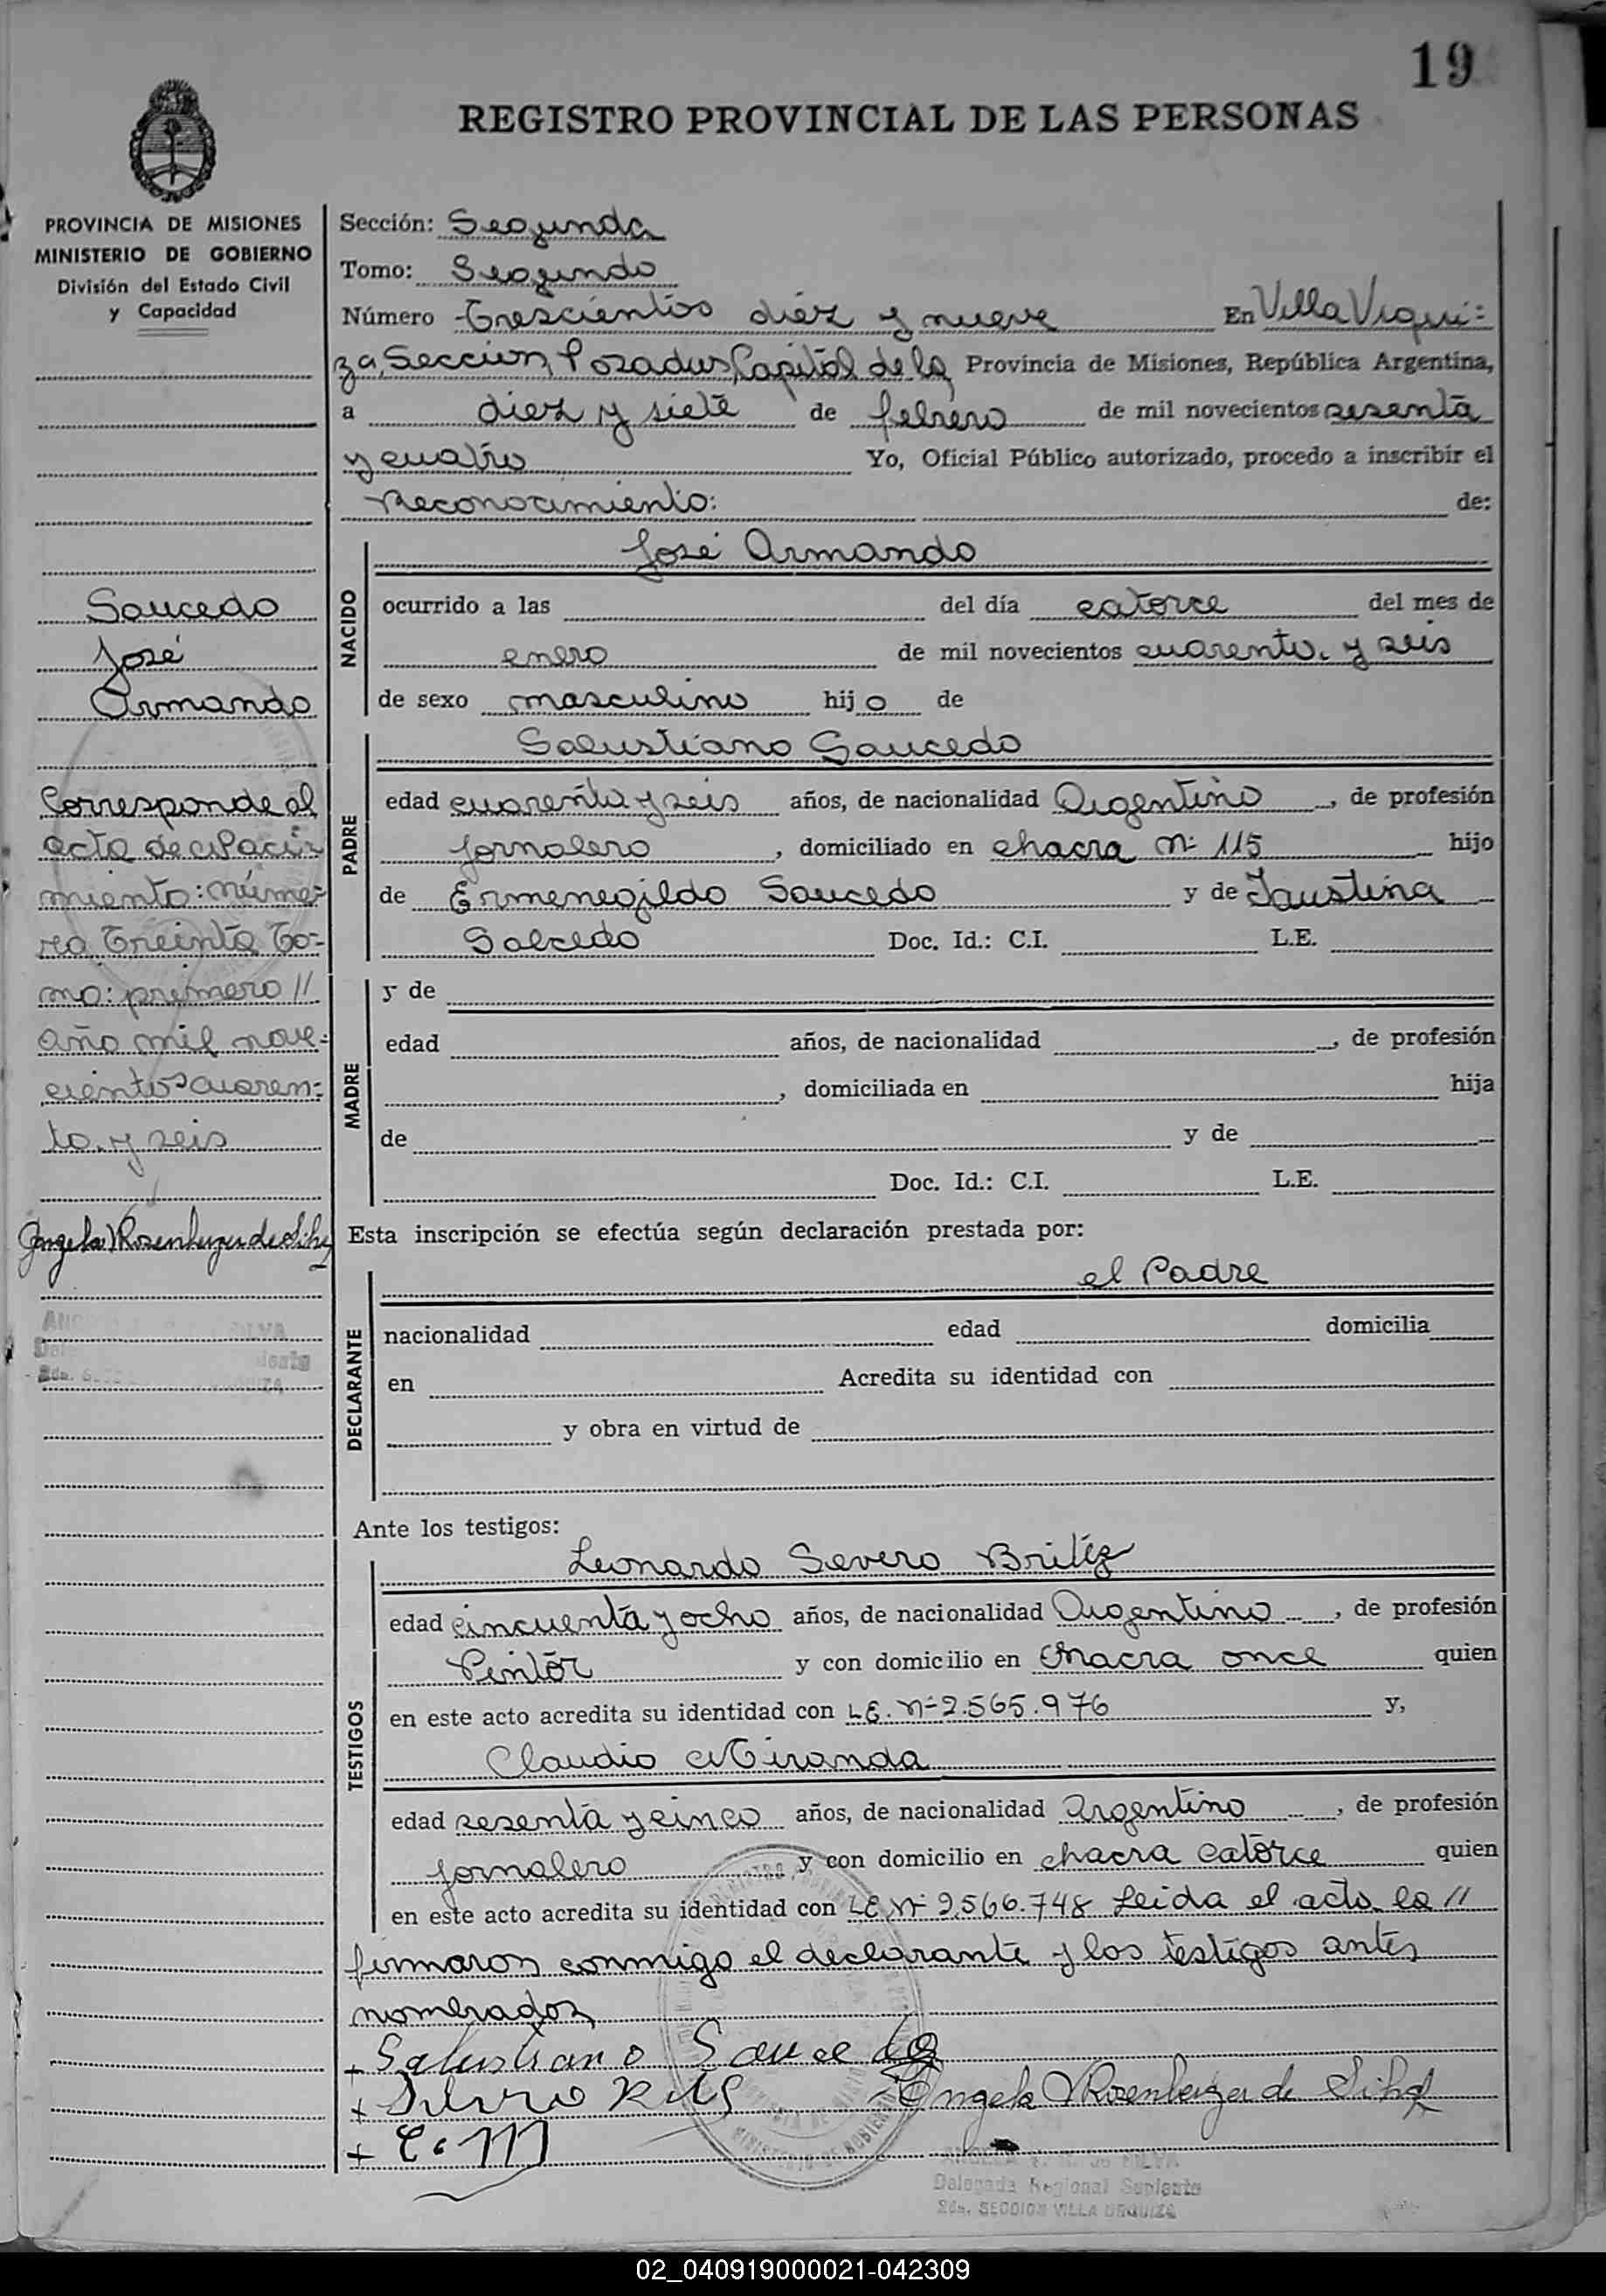 19
REGISTRO PROVINCIAL DE LAS PERSONAS
PROVINCIA DE MISIONES
MINISTERIO DE GOBIERNO
División del Estado Civil
y Capacidad
Saucedo
José
Armando
Corresponde al
acta de Naci=
miento: núme=
ro Treinta To=
mo: primero //
año mil nove=
cientos cuaren=
ta y seis
Angela Rosenberger de Silva
SILVA
2da.
Sección: Segunda
Tomo: Segundo
Número Trescientos diez y nueve En Villa Urqui=
za, Seccion, Posadas, Capital de la Provincia de Misiones, República Argentina,
a diez y siete de febrero de mil novecientos sesenta
y cuatro Yo, Oficial Público autorizado, procedo a inscribir el
Reconocimiento: de:
NACIDO
José Armando
ocurrido a las del día catorce del mes de
enero de mil novecientos cuarenta y seis
de sexo masculino hijo de
PADRE
Salustiano Saucedo
edad cuarenta y seis años, de nacionalidad Argentino, de profesión
jornalero, domiciliado en chacra Nº 115 hijo
de Ermenegildo Saucedo y de Faustina
Salcedo Doc. Id.: C.I. L.E.
MADRE
y de
edad años, de nacionalidad , de profesión
, domiciliada en hija
de y de
Doc. Id.: C.I. L.E.
Esta inscripción se efectúa según declaración prestada por:
DECLARANTE
el Padre
nacionalidad edad domicilia
en Acredita su identidad con
y obra en virtud de
Ante los testigos:
TESTIGOS
Leonardo Severo Britêz
edad cincuenta y ocho años, de nacionalidad Argentino, de profesión
Pintor y con domicilio en Chacra once quien
en este acto acredita su identidad con L.E. Nº 2.565.976 y,
Claudio Miranda
edad sesenta y cinco años, de nacionalidad argentino, de profesión
jornalero y con domicilio en chacra catorce quien
en este acto acredita su identidad con LE Nº 2.566.748 Leida el acta la //
firmaron conmigo el declarante y los testigos antes
nombrados
+ Salustiano Saucedo
+ Angela Rosenberger de Silva
+ C. M
Delegada Regional Suplente
2da. SECCION VILLA URQUIZA
02_040919000021-042309